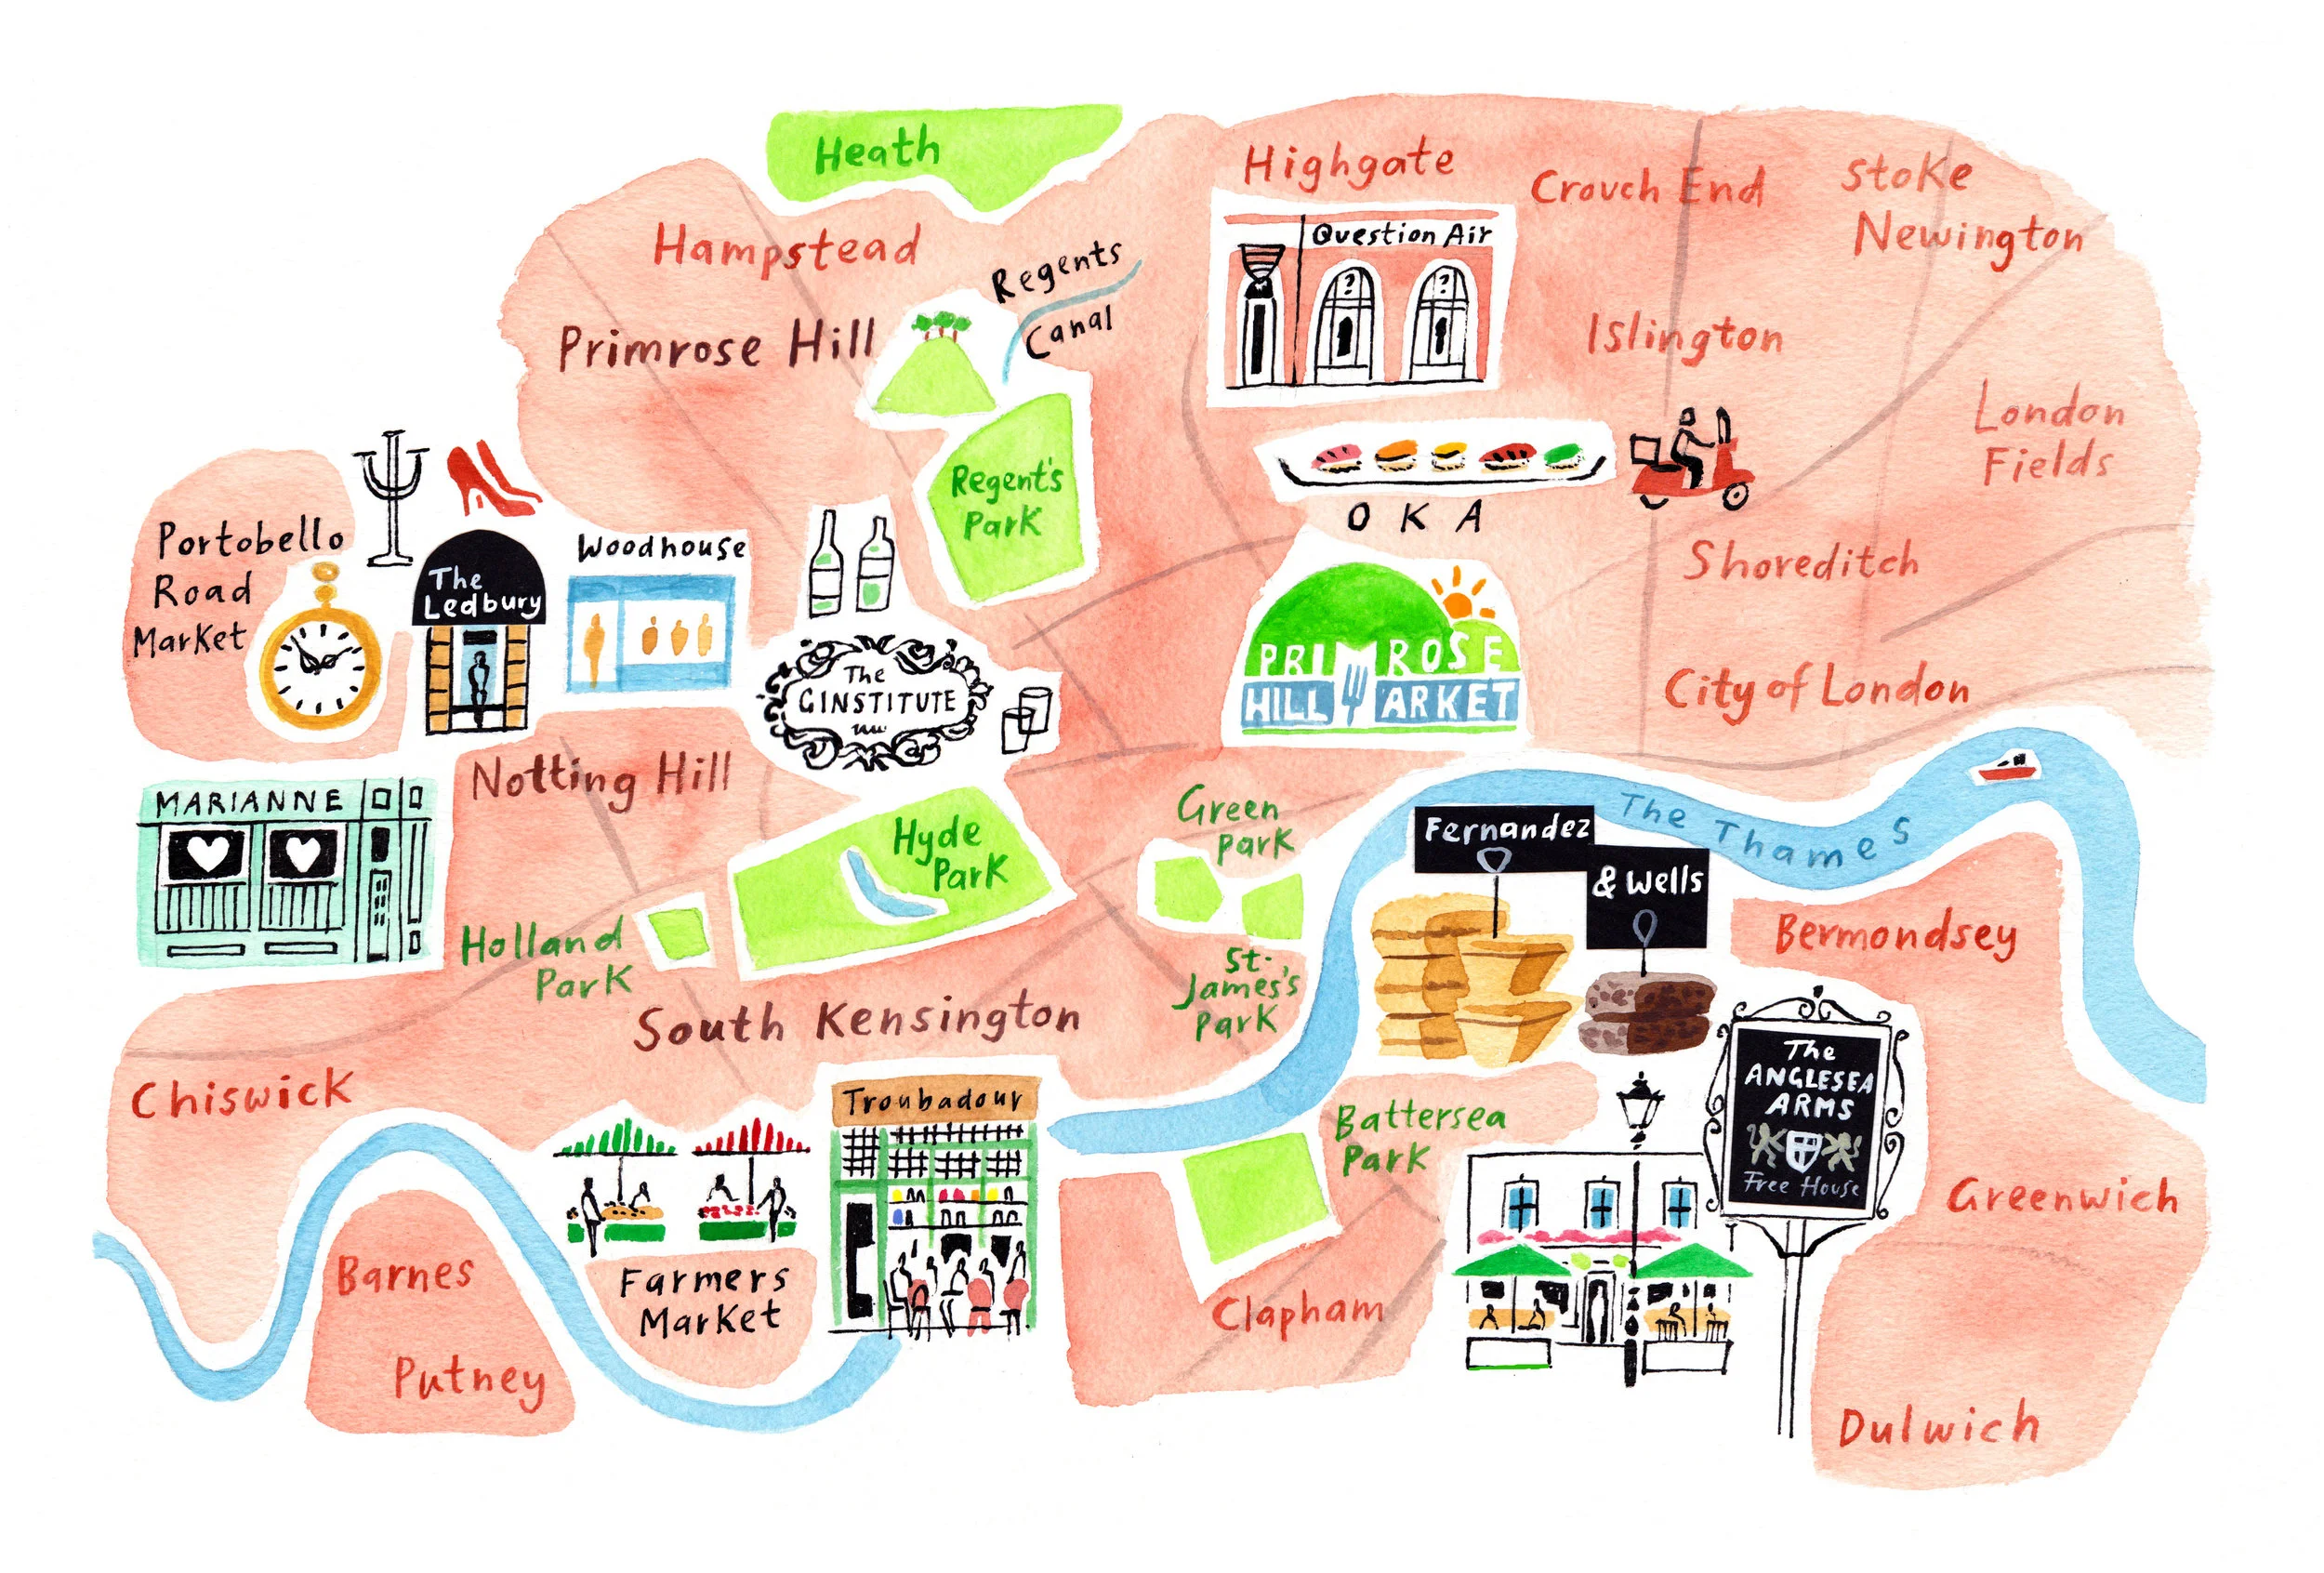 Heath
Highgate
Crouch End
Stoke
Newington
Hampstead
Regents
Canal
Question Air
Primrose Hill
Islington
London
Fields
Regent's
Park
O K A
Portobello
Road
Market
The
Ledbury
Woodhouse
Shoreditch
The
GINSTITUTE
PRIMROSE
HILL MARKET
City of London
Notting Hill
MARIANNE
Hyde
Park
Green
Park
Fernandez
& Wells
The Thames
Holland
Park
St.
James's
Park
Bermondsey
South Kensington
Chiswick
Troubadour
Battersea
Park
The
ANGLESEA
ARMS
Free House
Greenwich
Barnes
Putney
Farmers
Market
Clapham
Dulwich